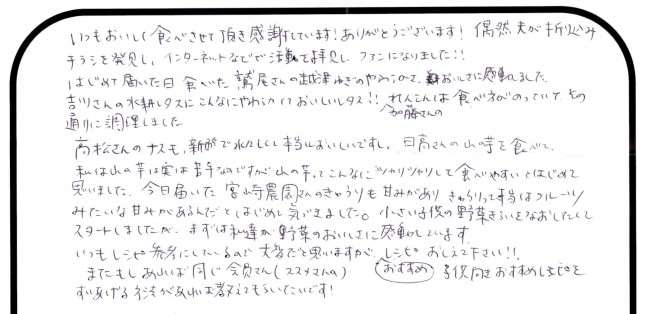 いつもおいしく食べさせて頂き感謝しています!ありがとうございます! 偶然夫が折り込み
チラシを発見し、インターネットなどで活動を拝見し、ファンになりました!!
はじめて届いた日食べた、鷲尾さんの越津ねぎのやわらかさ、おいしさに感動しました。
吉川さんの水耕レタスにこんなにやわらかくておいしいレタス!! れんこんは食べ方がのっていて、その
加藤さんの
通りに調理しました
高松さんのナスも、新鮮で水々しく本当においしいです。日高さんの山の芋を食べて、
私は山の芋は実は苦手なのですが山の芋ってこんなにシャリシャリして食べやすいとはじめて
思いました。今日届いた宮崎農園さんのきゅうりも甘みがあり きゅうりって本当はフルーツ
みたいな甘みがあるんだとはじめて気づきました。小さい子供の野菜きらいをなおしたくて
スタートしましたが、まずは私達が野菜のおいしさに感動しています。
いつもレシピ参考にしているので大変だと思いますが、レシピおしえて下さい!!
またもしあれば同じ会員さん(ススメさんの) おすすめ 子供向きおすすめレシピを
すりあげる方法があれば教えてもらいたいです!